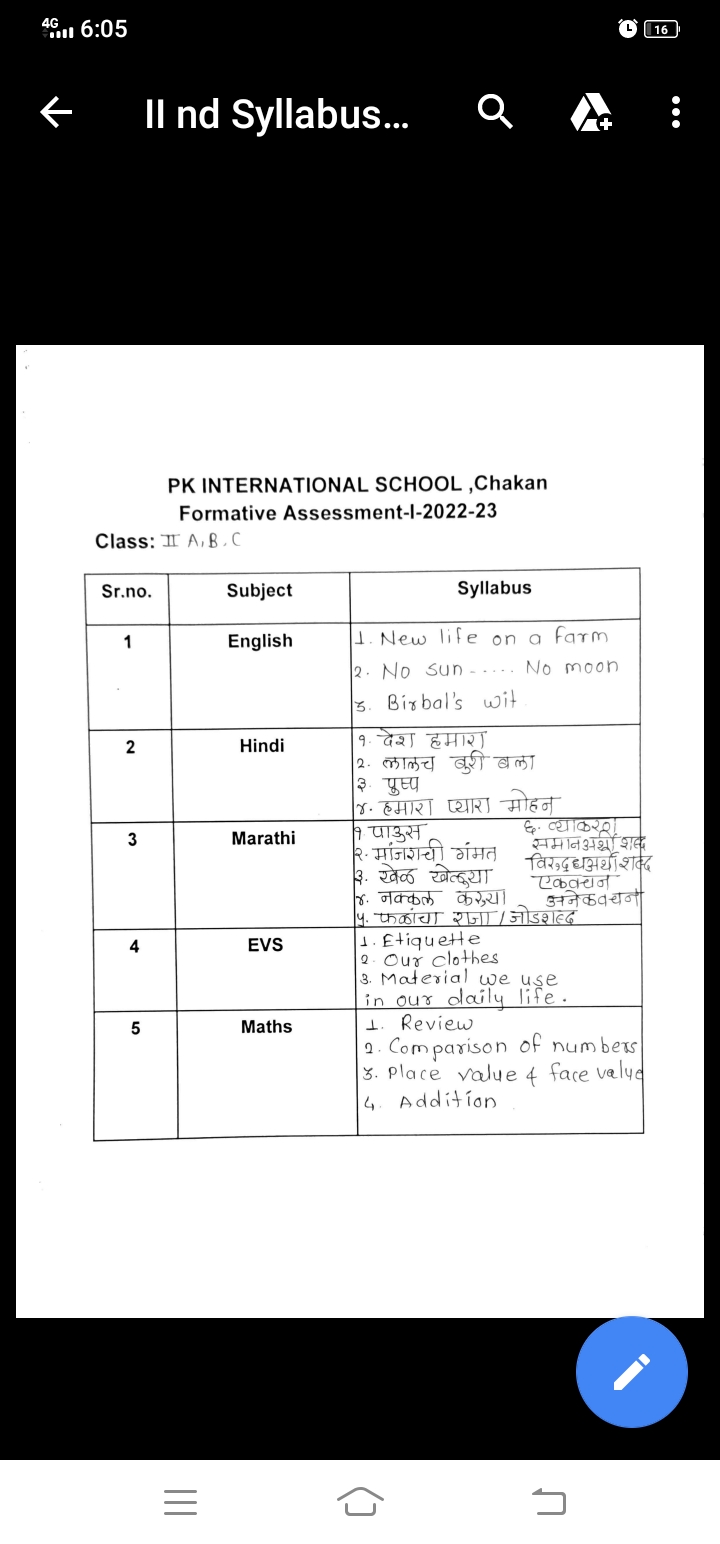 4G 6:05 16
II nd Syllabus...
PK INTERNATIONAL SCHOOL ,Chakan
Formative Assessment-I-2022-23
Class: II A,B,C
Sr.no. Subject Syllabus
1 English 1. New life on a farm
2. No sun ----- No moon
3. Birbal's wit.
2 Hindi १. देश हमारा
2. लालच बुरी बला
३. पुष्प
४. हमारा प्यारा मोहन
3 Marathi १. पाऊस ६. व्याकरण
२. मांजराची गंमत समानअर्थी शब्द
३. खेळ खेळूया विरुद्धअर्थी शब्द
४. नक्कल करूया एकवचन
अनेकवचन
५. फळांचा राजा / जोडशब्द
4 EVS 1. Etiquette
2. Our clothes
3. Material we use
in our daily life.
5 Maths 1. Review
2. Comparison of numbers
3. Place value & face value
4. Addition